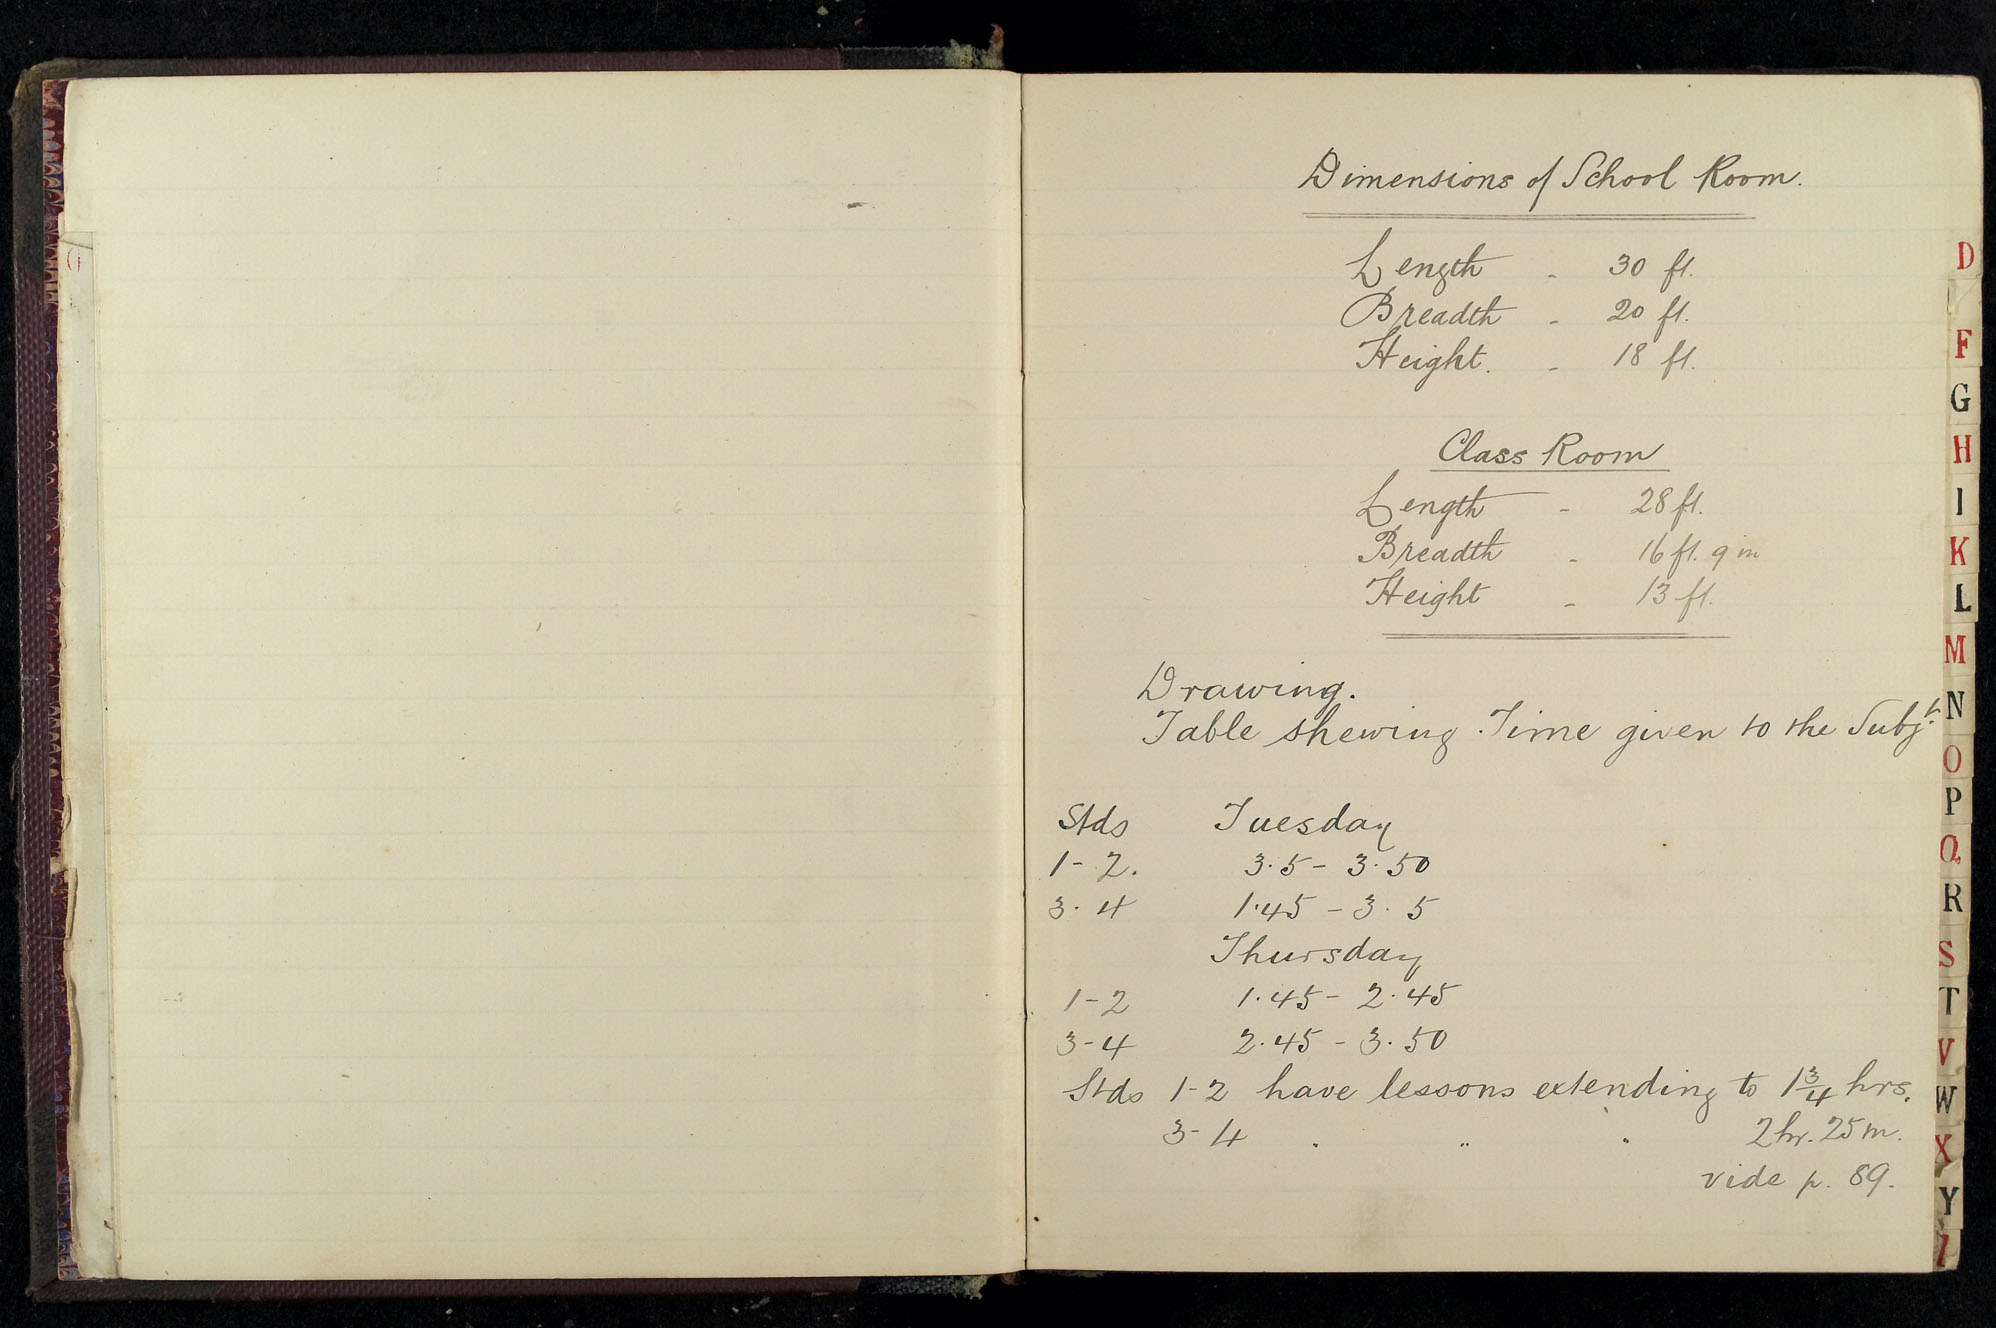 Dimensions of School Room.
Length - 30 ft.
Breadth - 20 ft.
Height. - 18 ft.
Class Room
Length - 28 ft.
Breadth - 16 ft. 9 in
Height - 13 ft.
Drawing.
Table shewing Time given to the Subjt.
Stds Tuesday
1-2. 3.5 - 3.50
3.4 1.45 - 3.5
Thursday
1-2 1.45 - 2.45
3-4 2.45 - 3.50
Stds 1-2 have lessons extending to 1 3/4 hrs.
3-4 . " " 2 hr. 25 m.
vide p. 89.
D
F
G
H
I
K
L
M
N
O
P
Q
R
S
T
V
W
X
Y